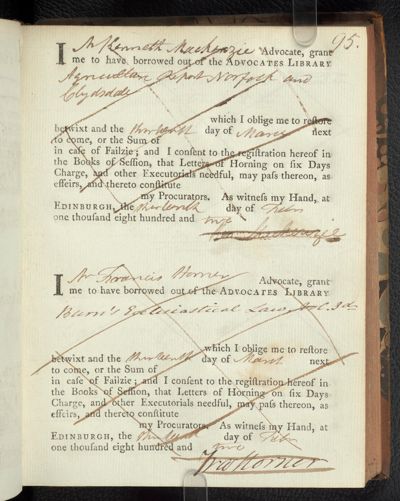 95.
I Mr Kenneth Mackenzie Advocate, grant
me to have borrowed out of the ADVOCATES LIBRARY
Agriculture Report Norfolk and
Clydsdale
which I oblige me to reſtore
betwixt and the thirteenth day of March next
to come, or the Sum of
in caſe of Failzie; and I conſent to the regiſtration hereof in
the Books of Seſſion, that Letters of Horning on ſix Days
Charge, and other Executorials needful, may paſs thereon, as
effeirs, and thereto conſtitute
my Procurators. As witneſs my Hand, at
EDINBURGH, the thirteenth day of Febr
one thouſand eight hundred and
Mackenzie
I Mr Francis Horner Advocate, grant
me to have borrowed out of the ADVOCATES LIBRARY
Burn's Ecclesiastical Law, Vol. 3d
which I oblige me to reſtore
betwixt and the thirteenth day of March next
to come, or the Sum of
in caſe of Failzie; and I conſent to the regiſtration hereof in
the Books of Seſſion, that Letters of Horning on ſix Days
Charge, and other Executorials needful, may paſs thereon, as
effeirs, and thereto conſtitute
my Procurators. As witneſs my Hand, at
EDINBURGH, the thirteenth day of Febr
one thouſand eight hundred and
Fra Horner